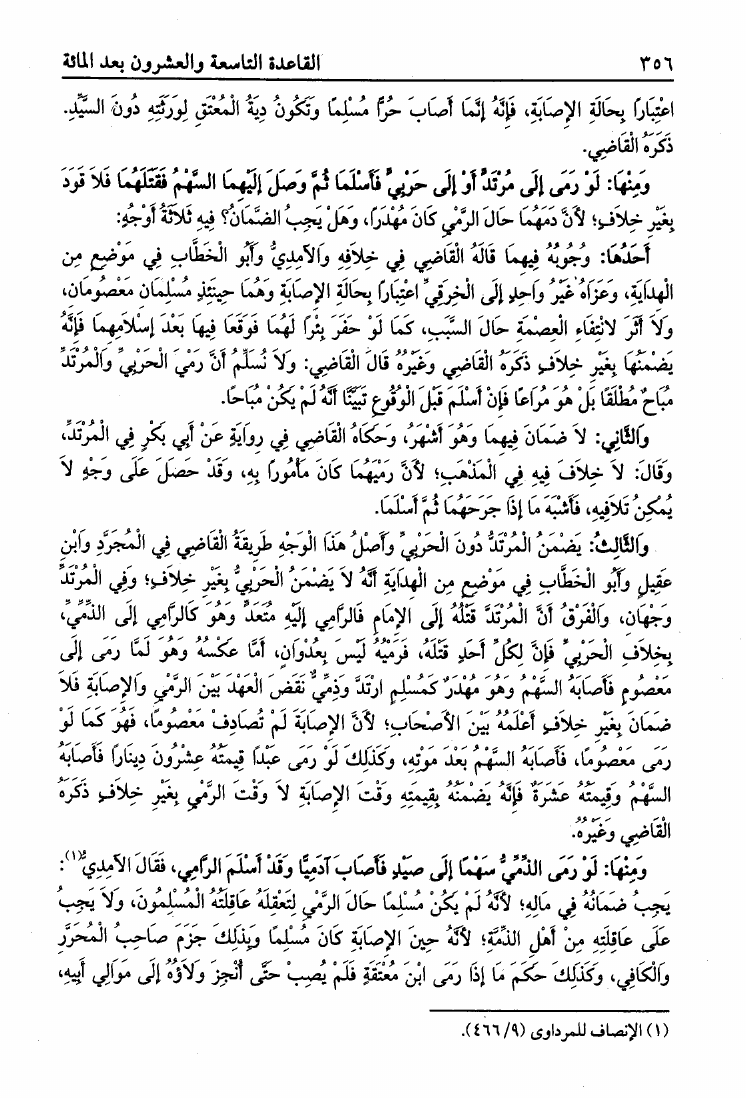 ٣٥٦ القاعدة التاسعة والعشرون بعد المائة
اعْتِبَارًا بِحَالَةِ الإِصَابَةِ، فَإِنَّهُ إِنَّمَا أَصَابَ حُرًّا مُسْلِمًا وَتَكُونُ دِيَةُ الْمُعْتَقِ لِوَرَثَتِهِ دُونَ السَّيِّدِ.
ذَكَرَهُ الْقَاضِي.
وَمِنْهَا: لَوْ رَمَى إِلَى مُرْتَدٍّ أَوْ إِلَى حَرْبِيٍّ فَأَسْلَمَا ثُمَّ وَصَلَ إِلَيْهِمَا السَّهْمُ فَقَتَلَهُمَا فَلاَ قَوَدَ
بِغَيْرِ خِلاَفٍ؛ لأَنَّ دَمَهُمَا حَالَ الرَّمْيِ كَانَ مُهْدَرًا، وَهَلْ يَجِبُ الضَّمَانُ؟ فِيهِ ثَلاَثَةُ أَوْجُهٍ:
أَحَدُهَا: وُجُوبُهُ فِيهِمَا قَالَهُ الْقَاضِي فِي خِلاَفِهِ وَالآمِدِيُّ وَأَبُو الْخَطَّابِ فِي مَوْضِعٍ مِن
الْهِدَايَةِ، وَعَزَاهُ غَيْرُ وَاحِدٍ إِلَى الْخِرَقِيِّ اعْتِبَارًا بِحَالَةِ الإِصَابَةِ وَهُمَا حِينَئِذٍ مُسْلِمَان مَعْصُومَان،
وَلاَ أَثَرَ لانْتِفَاءِ الْعِصْمَةِ حَالَ السَّبَبِ، كَمَا لَوْ حَفَرَ بِئْرًا لَهُمَا فَوَقَعَا فِيهَا بَعْدَ إِسْلاَمِهِمَا فَإِنَّهُ
يَضْمَنُهَا بِغَيْرِ خِلاَفٍ ذَكَرَهُ الْقَاضِي وَغَيْرُهُ قَالَ الْقَاضِي: وَلاَ نُسَلِّمُ أَنَّ رَمْيَ الْحَرْبِيِّ وَالْمُرْتَدِّ
مُبَاحٌ مُطْلَقًا بَلْ هُوَ مُرَاعًا فَإِنْ أَسْلَمَ قَبْلَ الْوُقُوعِ تَبَيَّنَّا أَنَّهُ لَمْ يَكُنْ مُبَاحًا.
وَالثَّانِي: لاَ ضَمَانَ فِيهِمَا وَهُوَ أَشْهَرُ، وَحَكَاهُ الْقَاضِي فِي رِوَايَةٍ عَنْ أَبِي بَكْرٍ فِي الْمُرْتَدِّ،
وَقَالَ: لاَ خِلاَفَ فِيهِ فِي الْمَذْهَبِ؛ لأَنَّ رَمْيَهُمَا كَانَ مَأْمُورًا بِهِ، وَقَدْ حَصَلَ عَلَى وَجْهٍ لاَ
يُمْكِنُ تَلاَفِيهِ، فَأَشْبَهَ مَا إِذَا جَرَحَهُمَا ثُمَّ أَسْلَمَا.
وَالثَّالِثُ: يَضْمَنُ الْمُرْتَدُّ دُونَ الْحَرْبِيِّ وَأَصْلُ هَذَا الْوَجْهِ طَرِيقَةُ الْقَاضِي فِي الْمُجَرَّدِ وَابْنِ
عَقِيلٍ وَأَبُو الْخَطَّابِ فِي مَوْضِعٍ مِن الْهِدَايَةِ أَنَّهُ لاَ يَضْمَنُ الْحَرْبِيُّ بِغَيْرِ خِلاَفٍ؛ وَفِي الْمُرْتَدِّ
وَجْهَان، وَالْفَرْقُ أَنَّ الْمُرْتَدَّ قَتْلُهُ إِلَى الإِمَامِ فَالرَّامِي إِلَيْهِ مُتَعَدٍّ وَهُوَ كَالرَّامِي إِلَى الذِّمِّيِّ،
بِخِلاَفِ الْحَرْبِيِّ فَإِنَّ لِكُلِّ أَحَدٍ قَتْلَهُ، فَرَمْيُهُ لَيْسَ بِعُدْوَانٍ، أَمَّا عَكْسُهُ وَهُوَ لَمَّا رَمَى إِلَى
مَعْصُومٍ فَأَصَابَهُ السَّهْمُ وَهُوَ مُهْدَرٌ كَمُسْلِمٍ ارْتَدَّ وَذِمِّيٌّ نَقَضَ الْعَهْدَ بَيْنَ الرَّمْيِ وَالإِصَابَةِ فَلاَ
ضَمَانَ بِغَيْرِ خِلاَفٍ أَعْلَمُهُ بَيْنَ الأَصْحَابِ؛ لأَنَّ الإِصَابَةَ لَمْ تُصَادِفْ مَعْصُومًا، فَهُوَ كَمَا لَوْ
رَمَى مَعْصُومًا، فَأَصَابَهُ السَّهْمُ بَعْدَ مَوْتِهِ، وَكَذَلِكَ لَوْ رَمَى عَبْدًا قِيمَتُهُ عِشْرُونَ دِينَارًا فَأَصَابَهُ
السَّهْمُ وَقِيمَتُهُ عَشَرَةٌ فَإِنَّهُ يَضْمَنُهُ بِقِيمَتِهِ وَقْتَ الإِصَابَةِ لاَ وَقْتَ الرَّمْيِ بِغَيْرِ خِلاَفٍ ذَكَرَهُ
الْقَاضِي وَغَيْرُهُ.
وَمِنْهَا: لَوْ رَمَى الذِّمِّيُّ سَهْمًا إِلَى صَيْدٍ فَأَصَابَ آدَمِيًّا وَقَدْ أَسْلَمَ الرَّامِي، فَقَالَ الآمِدِيُّ(١):
يَجِبُ ضَمَانُهُ فِي مَالِهِ؛ لأَنَّهُ لَمْ يَكُنْ مُسْلِمًا حَالَ الرَّمْيِ لِتَعْقِلَهُ عَاقِلَتُهُ الْمُسْلِمُونَ، وَلاَ يَجِبُ
عَلَى عَاقِلَتِهِ مِنْ أَهْلِ الذِّمَّةِ؛ لأَنَّهُ حِينَ الإِصَابَةِ كَانَ مُسْلِمًا وَبِذَلِكَ جَزَمَ صَاحِبُ الْمُحَرَّرِ
وَالْكَافِي، وَكَذَلِكَ حَكَمَ مَا إِذَا رَمَى ابْنَ مُعْتَقَةٍ فَلَمْ يُصِبْ حَتَّى أَنْجَزَ وَلاَؤُهُ إِلَى مَوَالِي أَبِيهِ،
(١) الإنصاف للمرداوى (٤٦٦/٩).